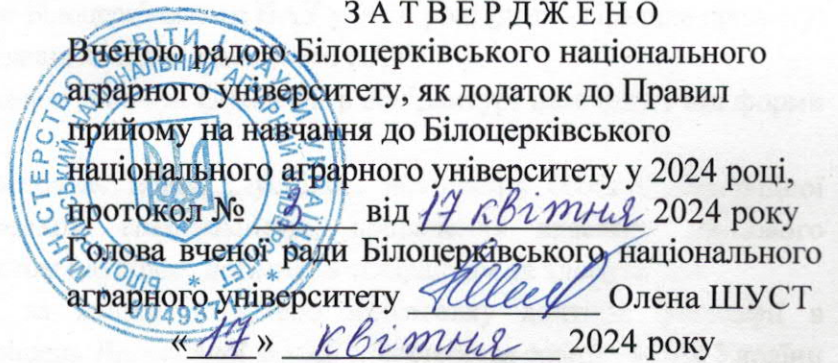 ЗАТВЕРДЖЕНО
Вченою радою Білоцерківського національного
аграрного університету, як додаток до Правил
прийому на навчання до Білоцерківського
національного аграрного університету у 2024 році,
протокол № 3 від 17 квітня 2024 року
Голова вченої ради Білоцерківського національного
аграрного університету Олена ШУСТ
«17» квітня 2024 року
МІНІСТЕРСТВО ОСВІТИ І НАУКИ УКРАЇНИ
НАЦІОНАЛЬНИЙ АГРАРНИЙ